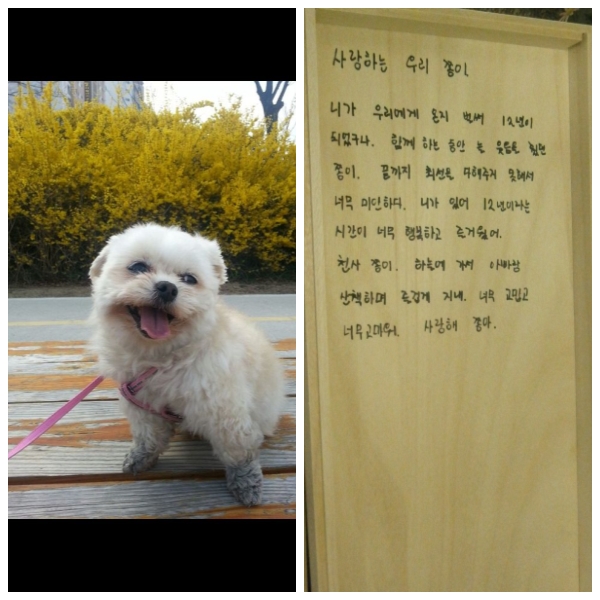 사랑하는 우리 쫑이
니가 우리에게 온지 벌써 12년이
되었구나. 함께 하는 동안 늘 웃음을 줬던
쫑이. 끝까지 최선을 다해주지 못해서
너무 미안하다. 니가 있어 12년이라는
시간이 너무 행복하고 즐거웠어.
천사 쫑이. 하늘에 가서 아빠랑
산책하며 즐겁게 지내. 너무 고맙고
너무 고마워. 사랑해 쫑아.